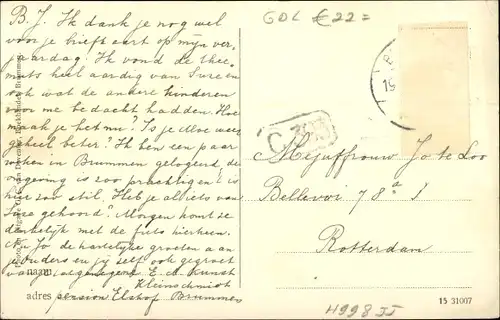 B. J. Ik dank je nog wel
voor je briefkaart op mijn ver-
jaardag. Ik vond de thee-
muts heel aardig van Suze en
ook wat de andere kinderen
voor me bedacht hadden. Hoe
maak je het nu? Is je Moe weer
geheel beter? Ik ben een paar
weken in Brummen gelogeerd, de
omgeving is zoo prachtig en 't is
hier zoo stil. Heb je al iets van
Suze gehoord? Morgen komt ze
denkelijk met de fiets hierheen.
Nu Jo de hartelijke groeten aan
je ouders en jij zelf ook gegroet
van je
naam: E. C. Kunst
Kleinschmidt
adres pension Elshof Brummen
GDL €22=
Mejuffrouw Jo te Loo
Bellevoi 78a
Rotterdam
H998
15 31007